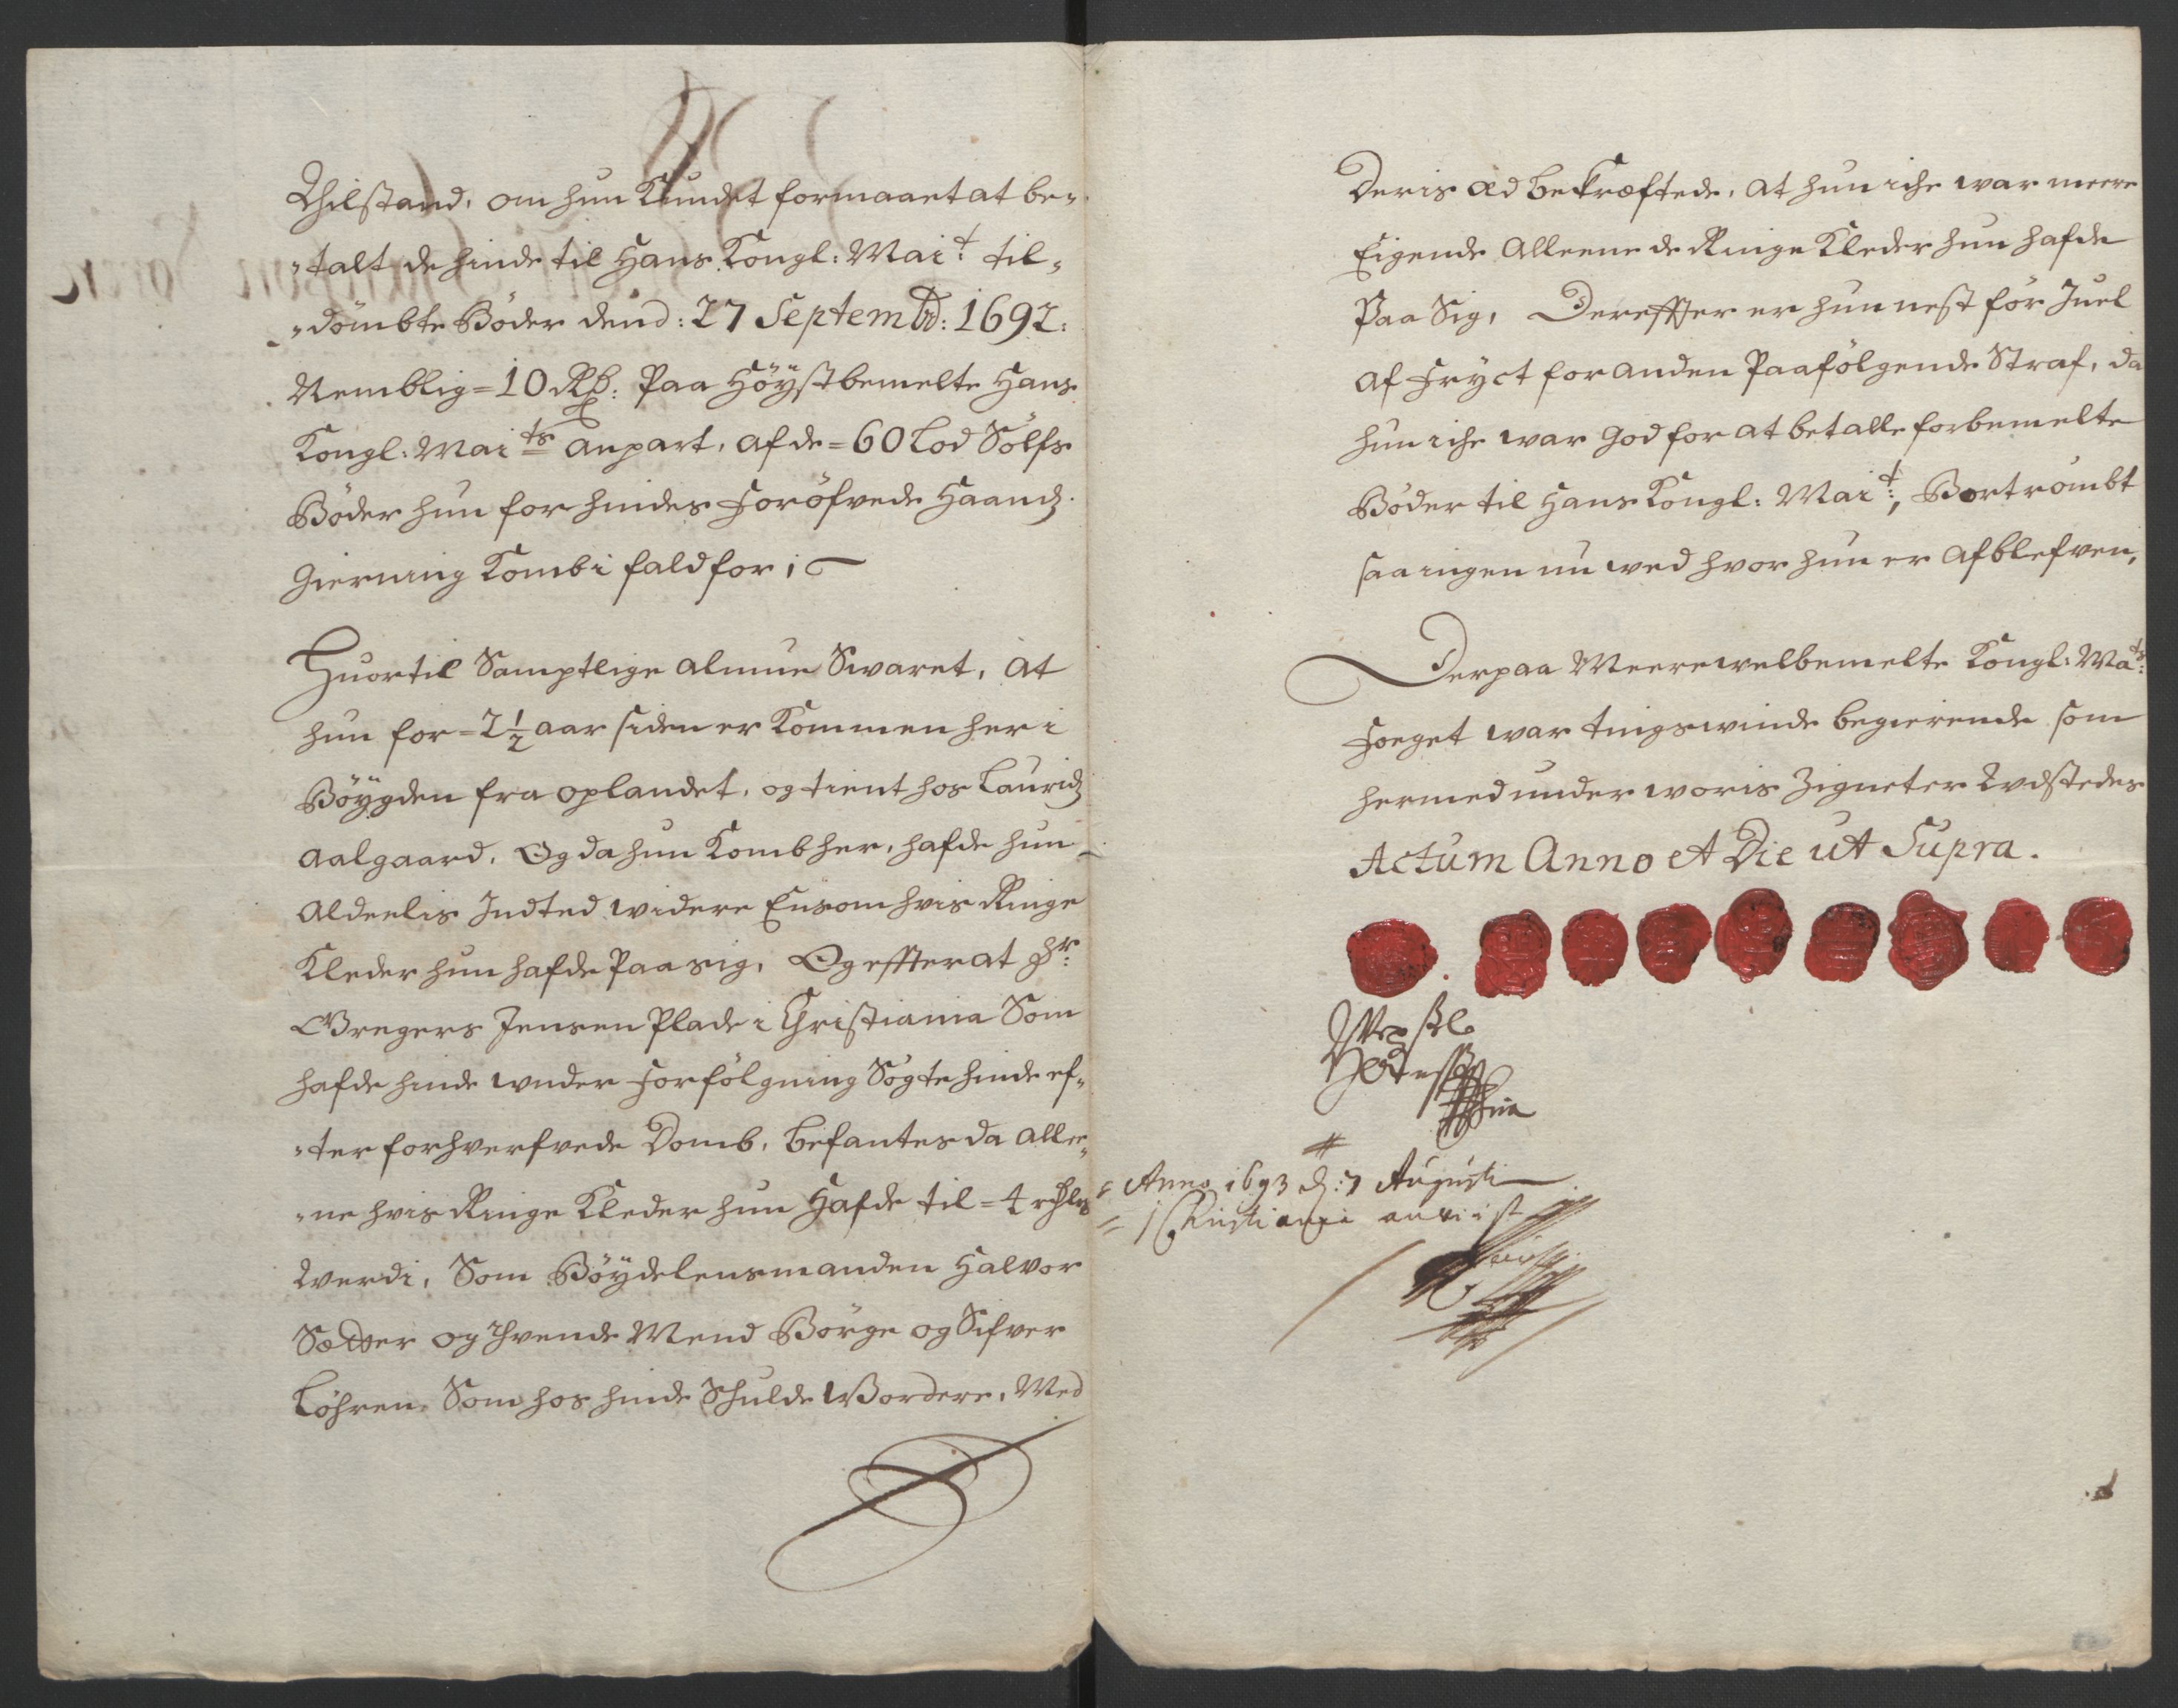 Thilstand, om hun Kundet formaaet at be„
„talt de hinde til Hans Kongl: Mai.t til„
„dömbte Böder dend: 27 Septembr: 1692:
Nemblig = 10 Rdr: Paa Höystbemelte Hans
Kongl: Mai.ts anpart, af de = 60 Lod Sölfs
Böder hun for hindes Foröfvede Haandz
Gierning Kombi fald for;
Huortil Samptlige Almue Swaret, At
hun for = 2 1/2 aar siden er Kommen her i
Böygden fra oplandet, og tient hos Lauridz
Aalgaard, Og da hun Komb her, hafde hun
Aldeelis Indted widere Ensom hvis Ringe
Kleder hun hafde Paa sig, Og effter at Hr:
Gregers Jensen Plade i Christiania Som
hafde hinde under Forfölgning Sögte hinde ef„
„ter forhverfvede Domb, befantes da allee„
„ne hvis Ringe Kleder hun Hafde til = 4 rdlrs
Werdi, Som Böydelensmanden Halvor
Sætter og Thvende Mend Börge og Sifver
Löhren Som hos hinde Skulde Wordere, Med
Deris Æd bekræftede, At hun iche war meere
Eigende Alleene de Ringe Kleder hun hafde
Paa Sig, Dereffter er hun nest för Juel
Af Fryct for anden Paafölgende Straf, da
hun iche war God for at betalle forbemelte
Böder til Hans Kongl: Mai.t:, Bortrömbt
saa ingen nu wed hvor hun er Afblefven,
Derpaa Meerewelbemelte Kongl: Ma.ts:
Foeget war tingswinde begierende som
hermed under woris Zigneter Udstedes
Actum Anno et Die ut Supra.
Anno 1693 d: 7 Augusti
i Christiania anviist